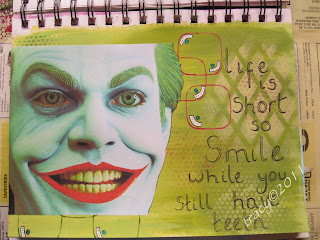 life
is
short
so
Smile
while you
still have
teeth
tracy©2011